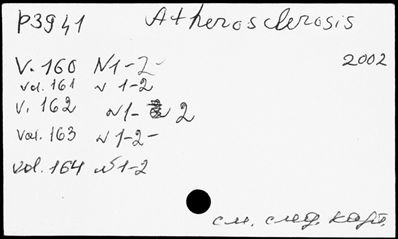 P3941 Atherosclerosis
V. 160 N1-2- 2002
vol. 161 N 1-2
V. 162 N1- 2
vol. 163 N 1-2-
vol. 164 N1-2
см. след. карт.